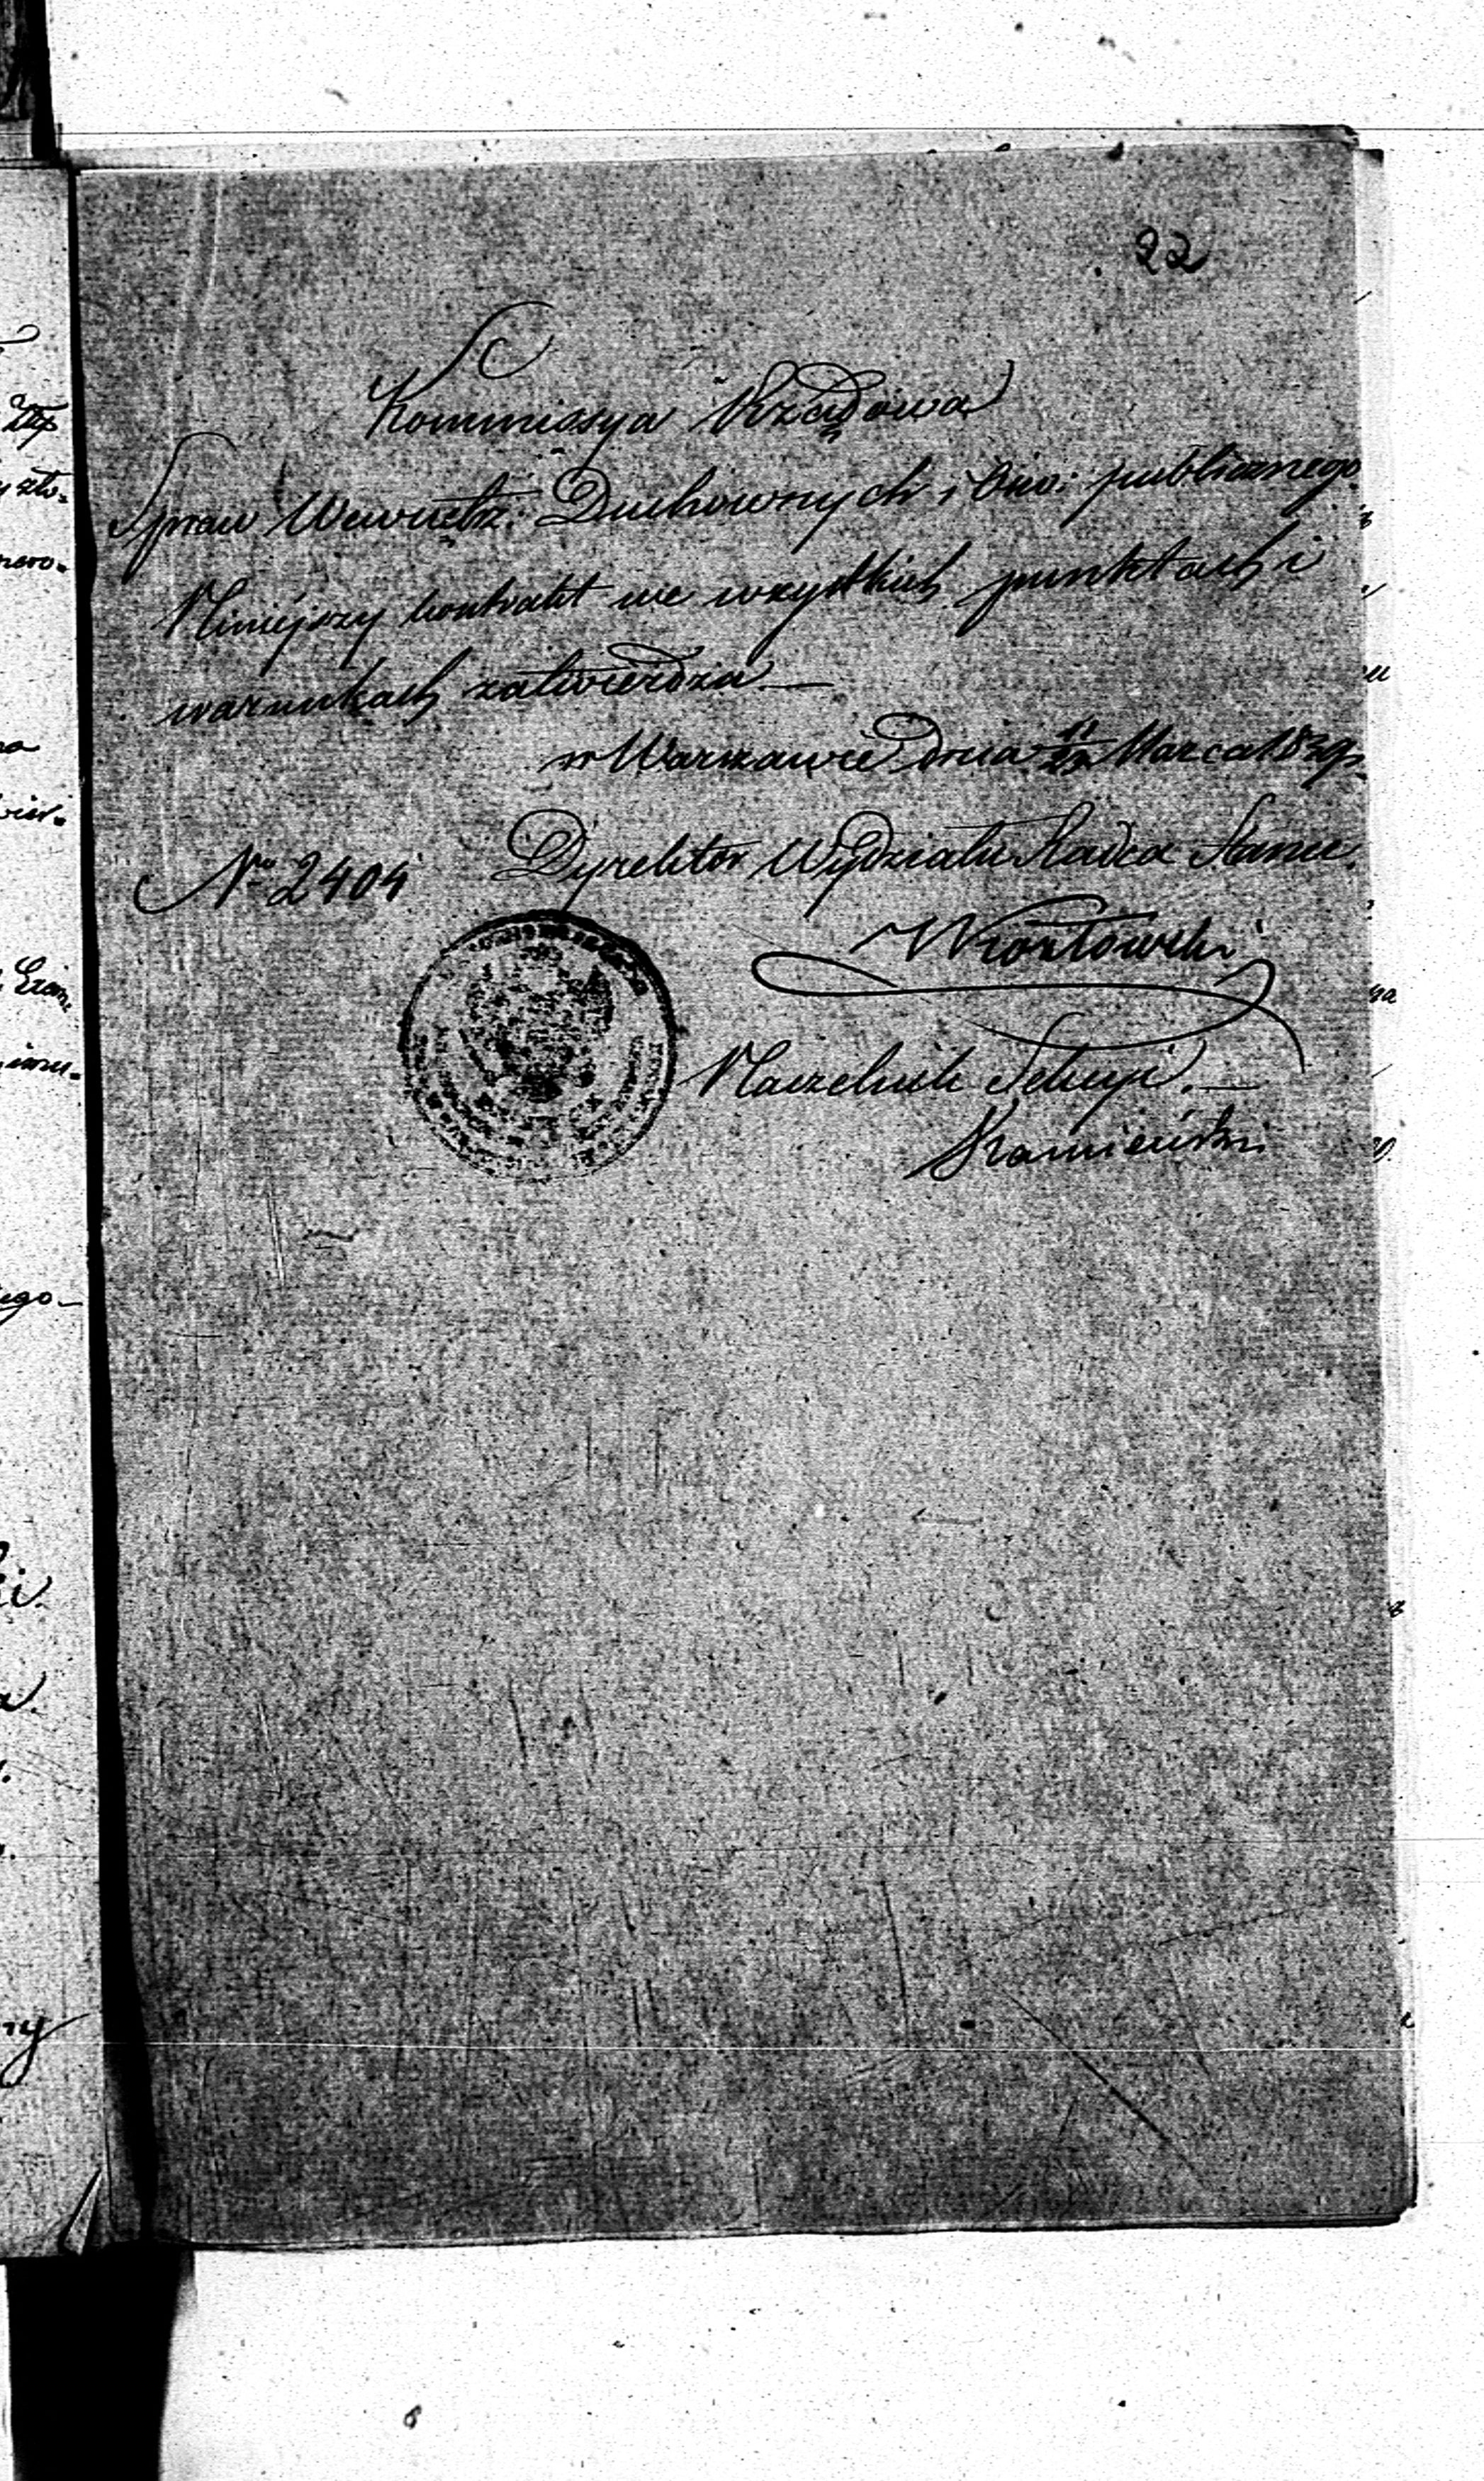 22
Kommissya Rządowa
Spraw Wewnętrz: Duchownych i Ośw: publicznego
Niniéjszy kontrakt we wszystkich punktach i
warunkach zatwierdza —
w Warszawie dnia 11/23 Marca 1839 r.
Dyrektor Wydziału Radca Stanu.
No 2404
Kozłowski
Naczelnik Sekcyi. —
Kamieński